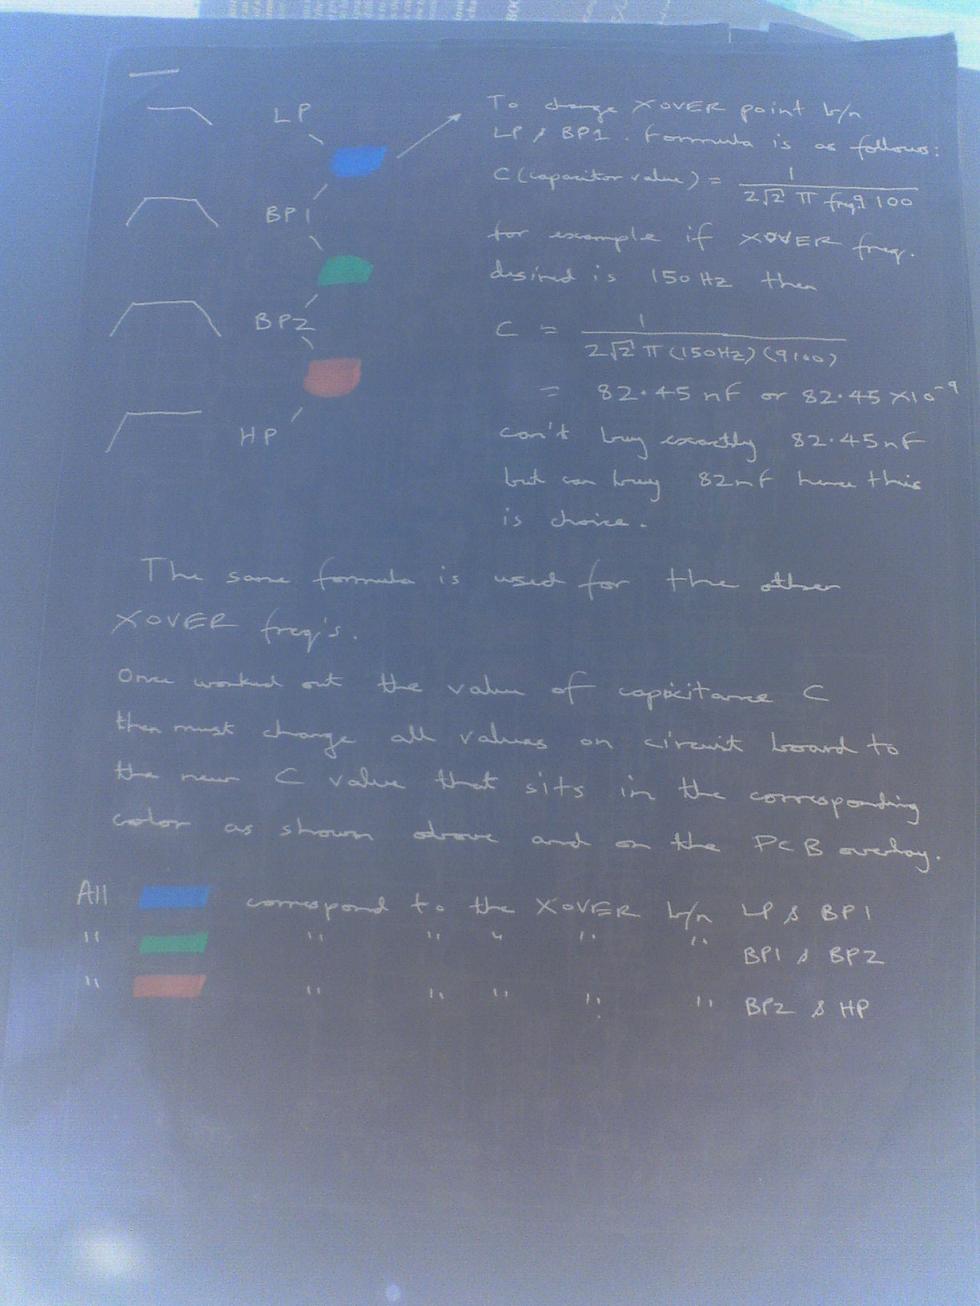 LP
BP1
BP2
HP
To change XOVER point b/n
LP & BP1. Formula is as follows:
C (capacitor value) = 1 / 2√2 π freq 9100
for example if XOVER freq.
desired is 150Hz then
C = 1 / 2√2 π (150Hz) (9100)
= 82.45 nF or 82.45 x10⁻⁹
can't buy exactly 82.45nF
but can buy 82nF hence this
is choice.
The same formula is used for the other
XOVER freq's.
Once worked out the value of capicitance C
then must change all values on circuit board to
the new C value that sits in the corresponding
color as shown above and on the PCB overlay.
All correspond to the XOVER b/n LP & BP1
" " " " " " BP1 & BP2
" " " " " " BP2 & HP